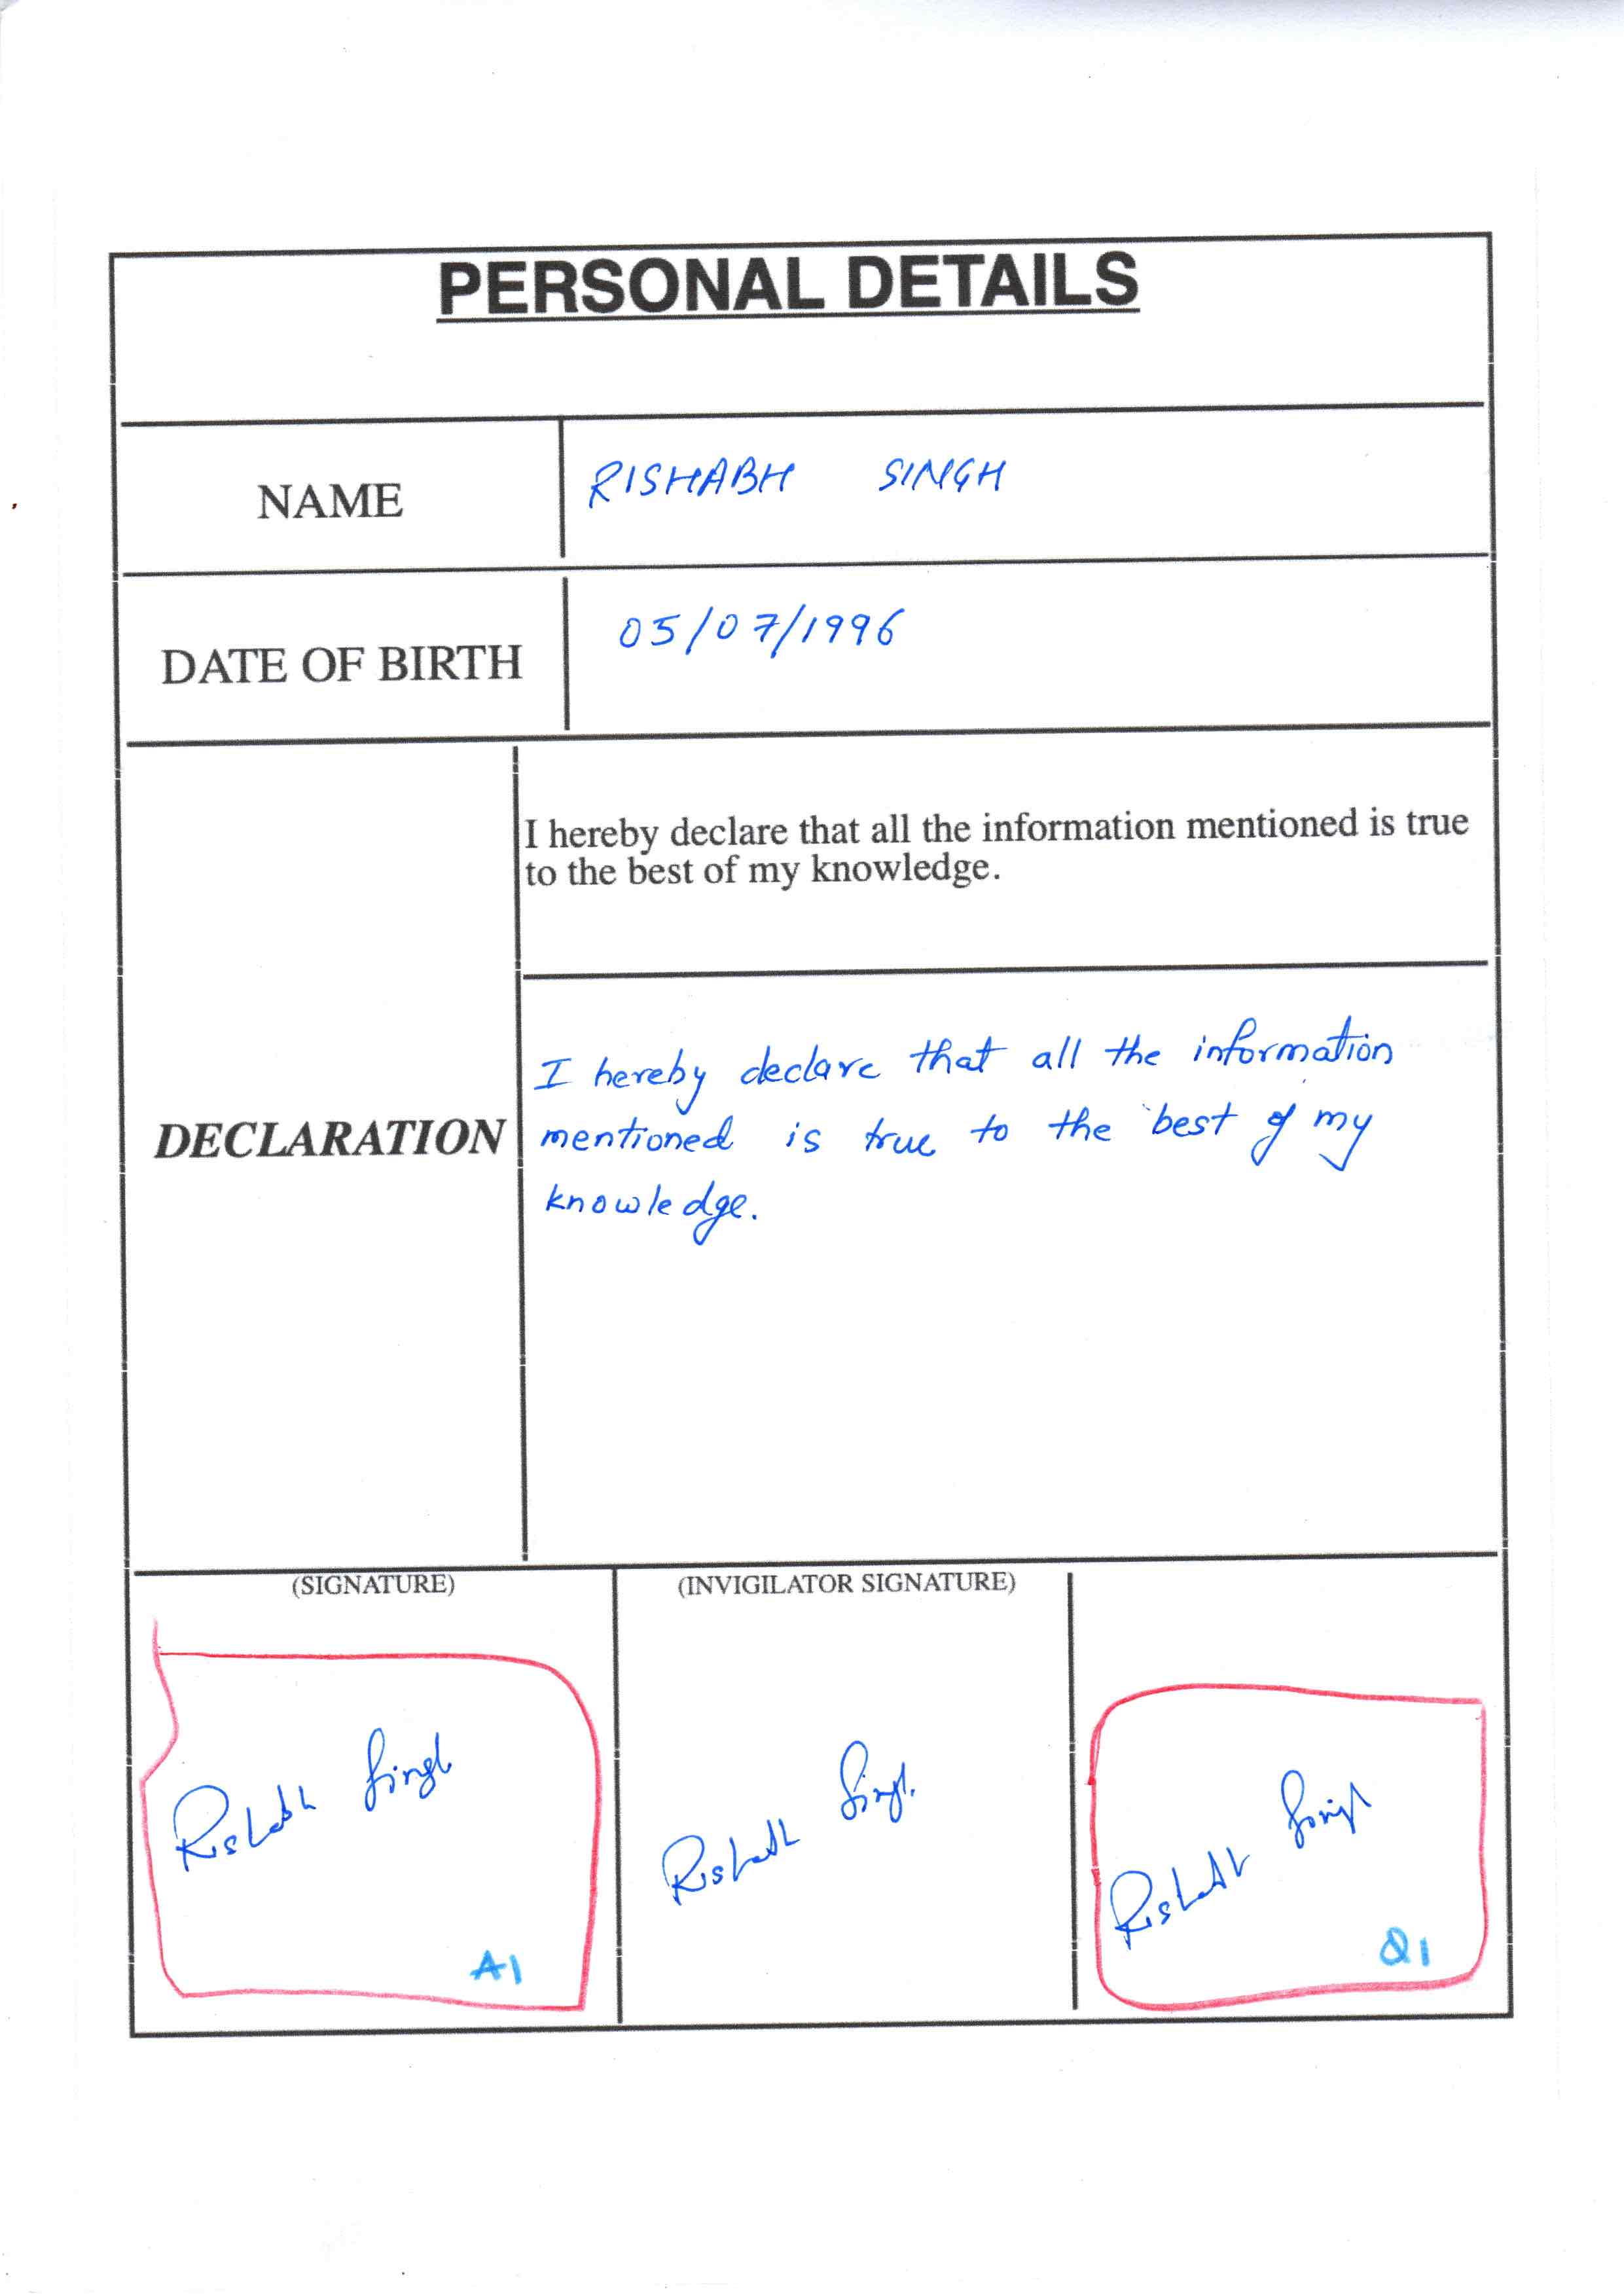 PERSONAL DETAILS
NAME
RISHABH SINGH
DATE OF BIRTH
05/07/1996
DECLARATION
I hereby declare that all the information mentioned is true
to the best of my knowledge.
I hereby declare that all the information
mentioned is true to the best of my
knowledge.
(SIGNATURE)
Rishabh Singh
A1
(INVIGILATOR SIGNATURE)
Rishabh Singh
Rishabh Singh
Q1